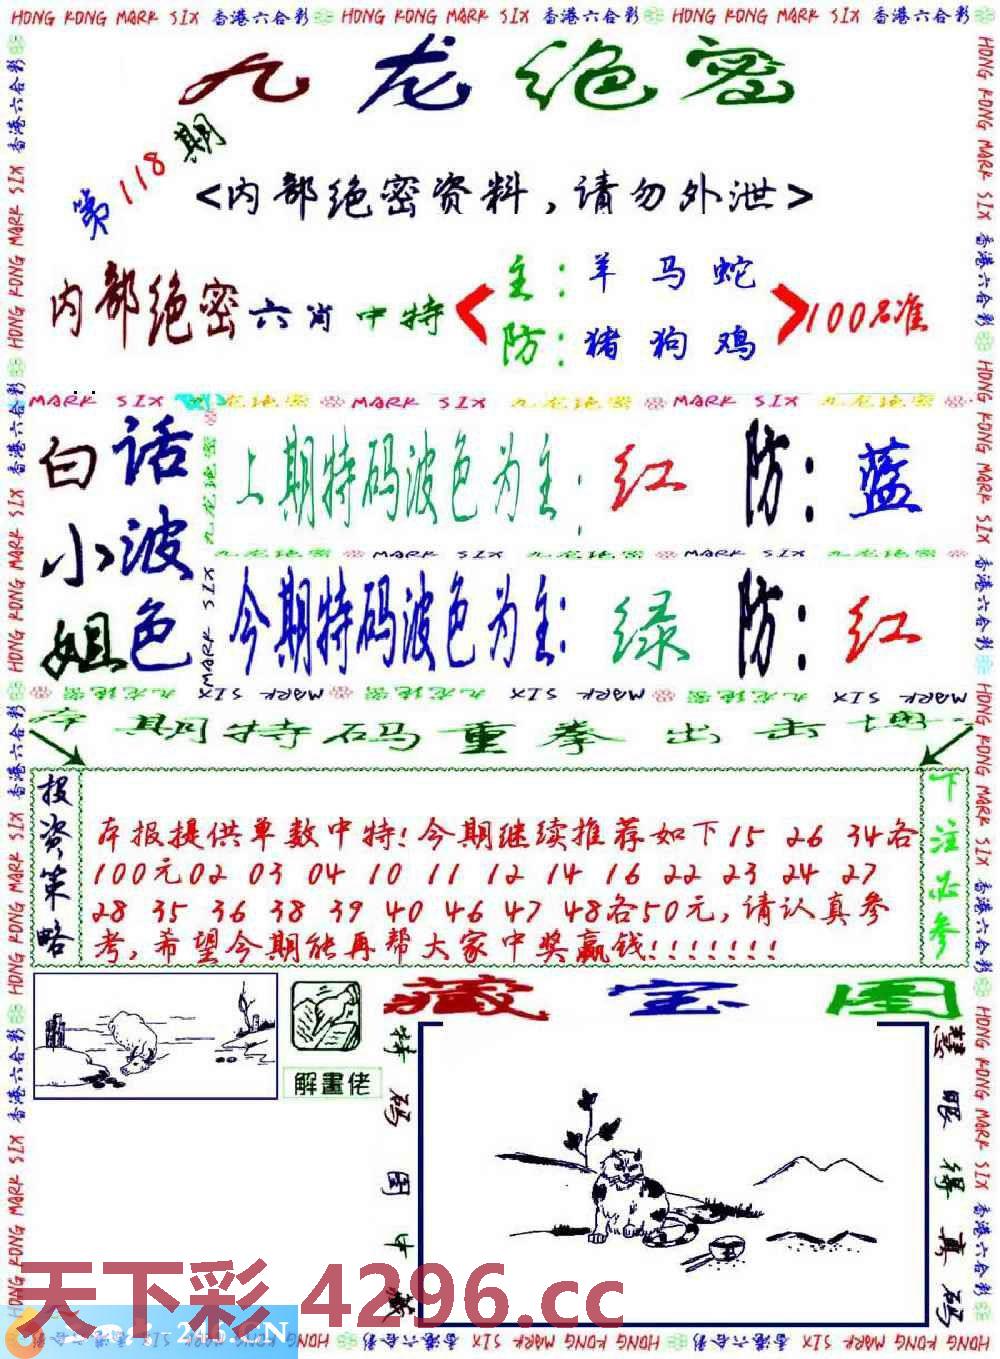 HONG KONG MARK SIX 香港六合彩 HONG KONG MARK SIX 香港六合彩 HONG KONG MARK SIX 香港六合彩
九龙绝密
第118期
<内部绝密资料,请勿外泄>
内部绝密六肖中特
主:羊 马 蛇
防:猪 狗 鸡
100%准
MARK SIX 九龙绝密 MARK SIX 九龙绝密 MARK SIX 九龙绝密
白小姐
话波色
上期特码波色为主:红 防:蓝
九龙绝密 MARK SIX 九龙绝密 MARK SIX 九龙绝密
今期特码波色为主:绿 防:红
本期特码重拳出击
投资策略
本报提供单数中特!今期继续推荐如下15 26 34各
100元02 03 04 10 11 12 14 16 22 23 24 27
28 35 36 38 39 40 46 47 48各50元,请认真参
考,希望今期能再帮大家中奖赢钱!!!!!!!
下注必参
解畫佬
藏宝图
特码图中藏
慧眼得真码
天下彩 4296.cc
246.CN